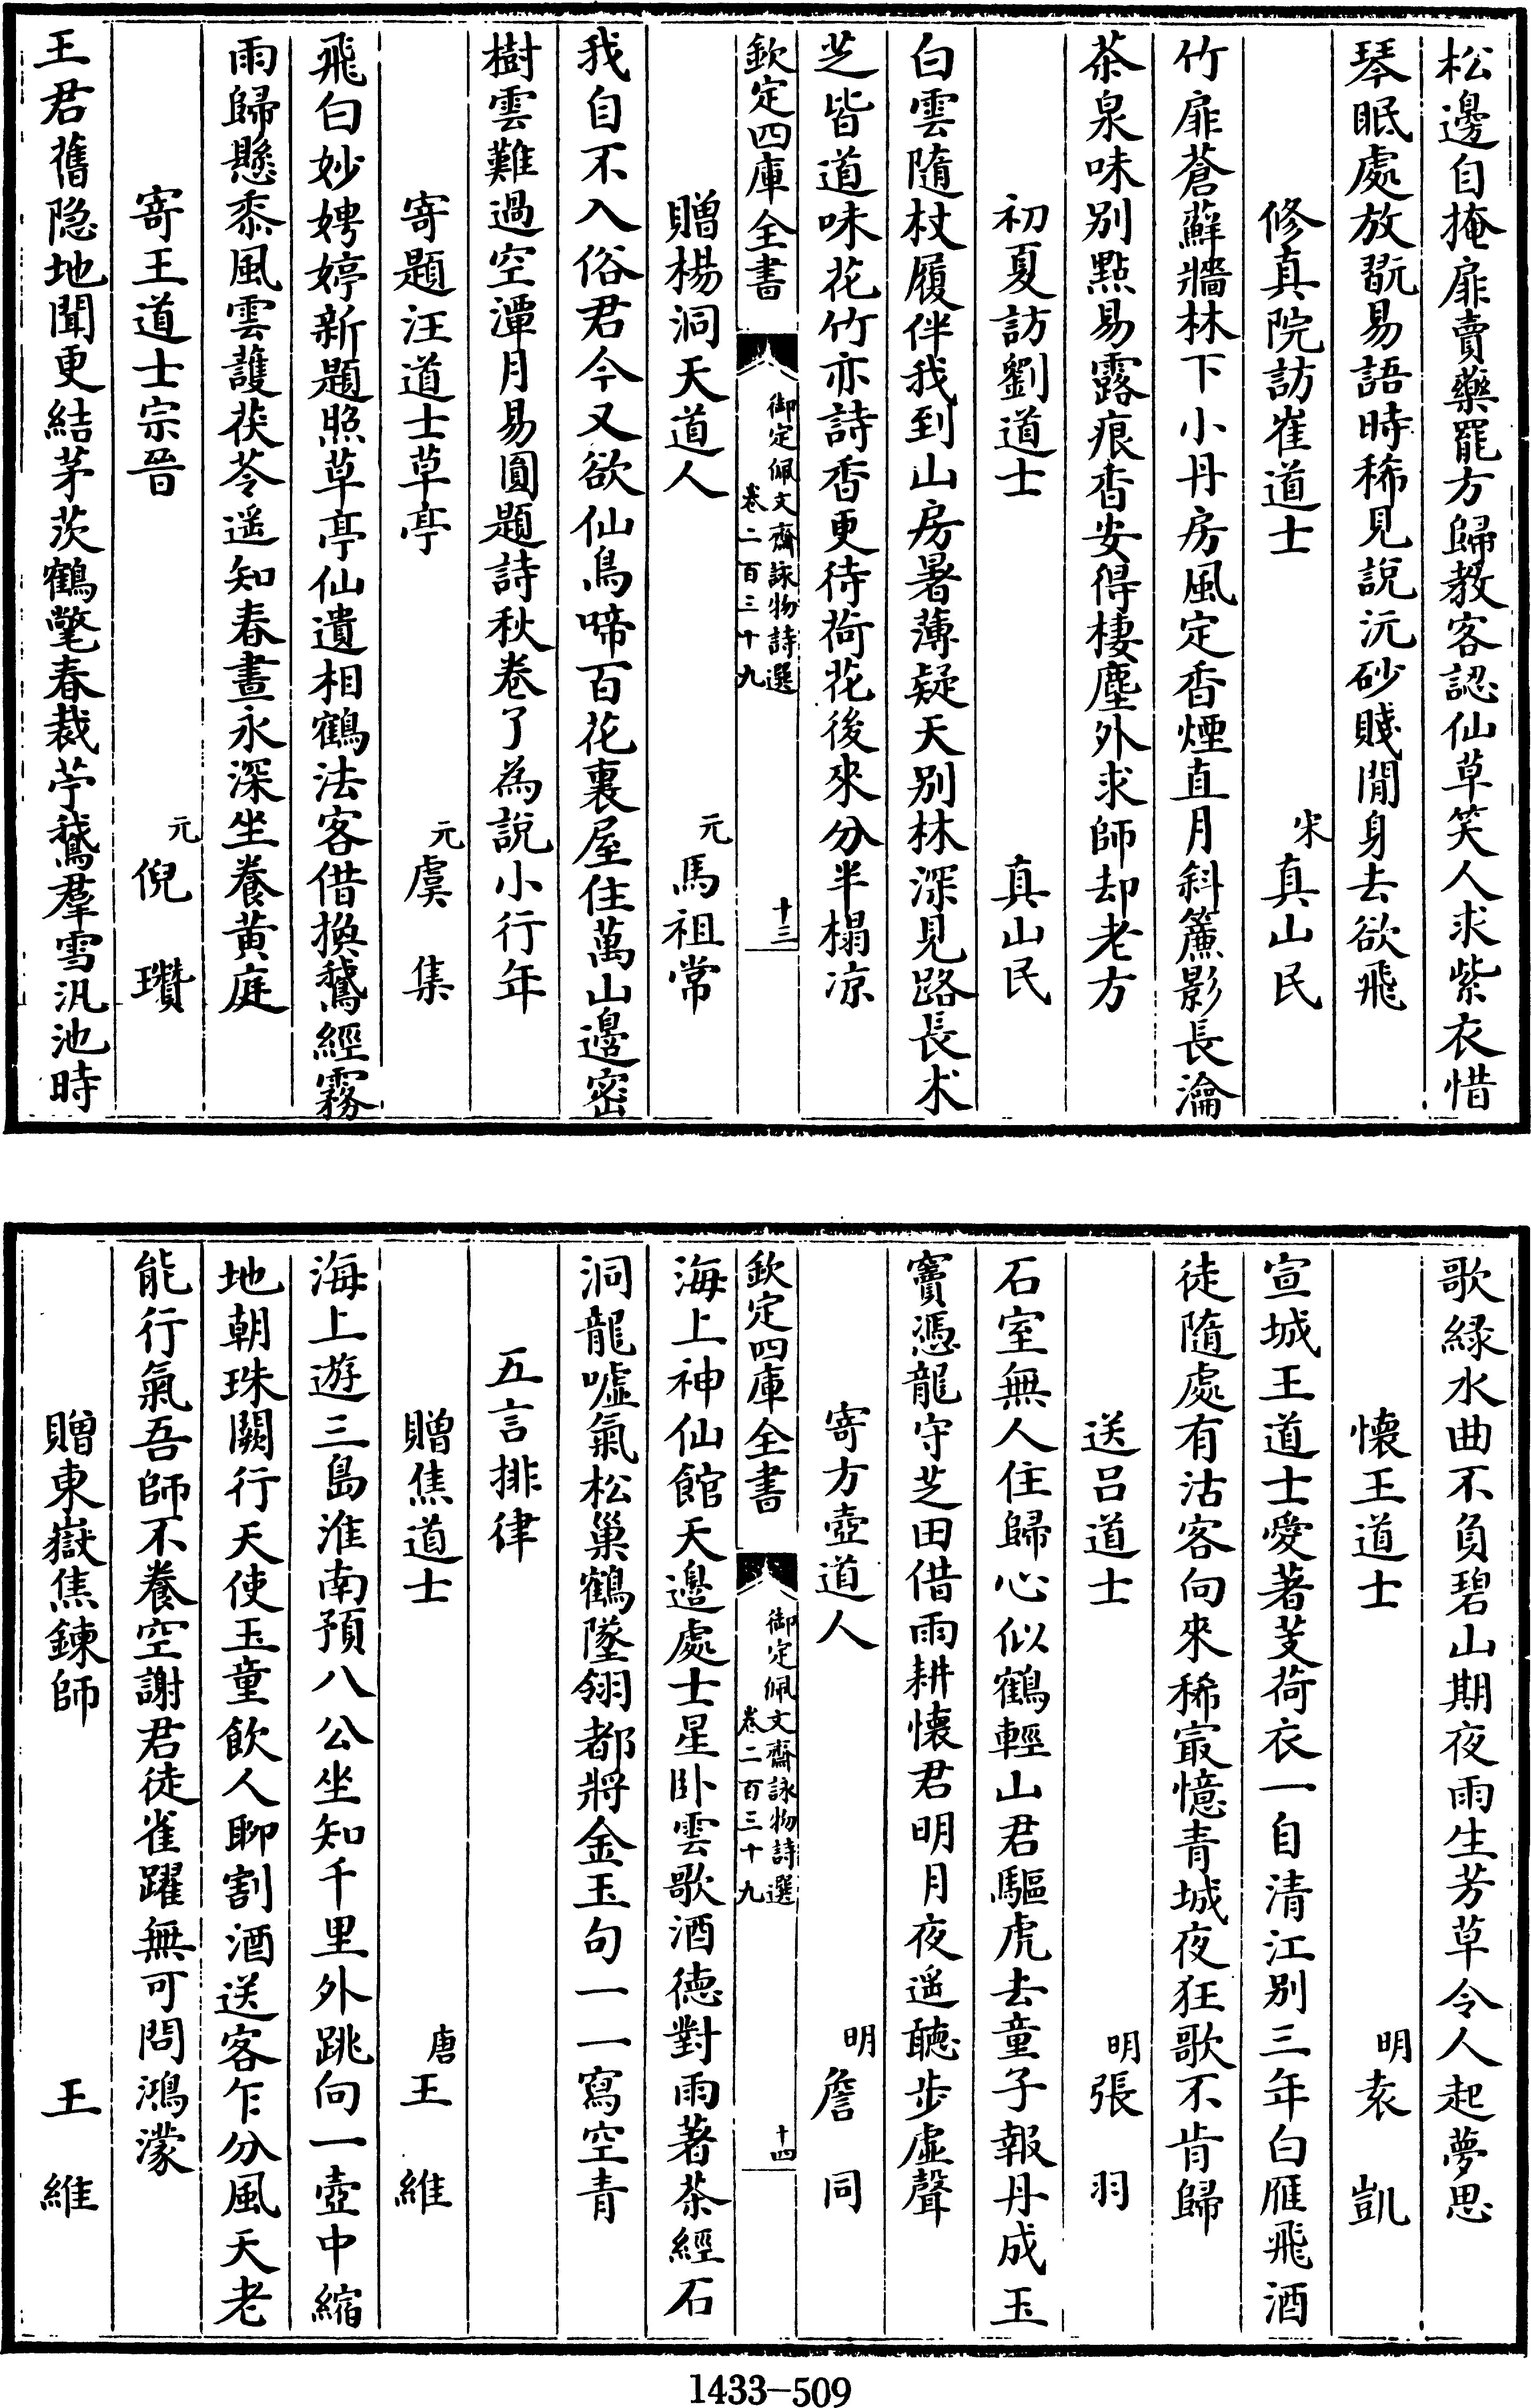 松邊自掩扉賣藥罷方歸教客認仙草笑人求紫衣惜
琴眠處放翫易語時稀見說沅砂賤閒身去欲飛
修真院訪崔道士　宋真山民
竹扉蒼蘚牆林下小丹房風定香煙直月斜簾影長瀹
茶泉味别點易露痕香安得棲塵外求師却老方
初夏訪劉道士　真山民
白雲隨杖履伴我到山房暑薄疑天别林深見路長朮
芝皆道味花竹亦詩香更待荷花後來分半榻凉
欽定四庫全書　御定佩文齋詠物詩選　卷二百三十九　十三
贈楊洞天道人　元馬祖常
我自不入俗君今又欲仙鳥啼百花裏屋住萬山邊密
樹雲難過空潭月易圓題詩秋卷了為說小行年
寄題汪道士草亭　元虞集
飛白妙娉婷新題照草亭仙遺相鶴法客借換鵞經霧
雨歸懸黍風雲護茯苓遥知春晝永深坐養黄庭
寄王道士宗晉　元倪瓚
王君舊隐地聞更結茅茨鶴氅春裁苧鵞羣雪汎池時
歌緑水曲不負碧山期夜雨生芳草令人起夢思
懐王道士　明袁凱
宣城王道士愛著芰荷衣一自清江别三年白雁飛酒
徒隨處有沽客向來稀㝡憶青城夜狂歌不肯歸
送吕道士　明張羽
石室無人住歸心似鶴輕山君驅虎去童子報丹成玉
竇憑龍守芝田借雨耕懐君明月夜遥聽步虚聲
寄方壺道人　明詹同
欽定四庫全書　御定佩文齋詠物詩選　卷二百三十九　十四
海上神仙館天邊處士星卧雲歌酒德對雨著茶經石
洞龍嘘氣松巢鶴墜翎都將金玉句一一寫空青
五言排律
贈焦道士　唐王維
海上遊三島淮南預八公坐知千里外跳向一壺中縮
地朝珠闕行天使玉童飲人聊割酒送客乍分風天老
能行氣吾師不養空謝君徒雀躍無可問鴻濛
贈東嶽焦鍊師　王維
1433—509